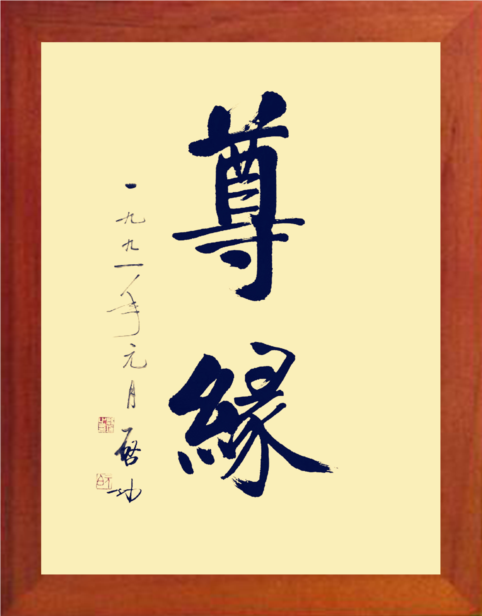 尊緣
一九九一年元月
啓功